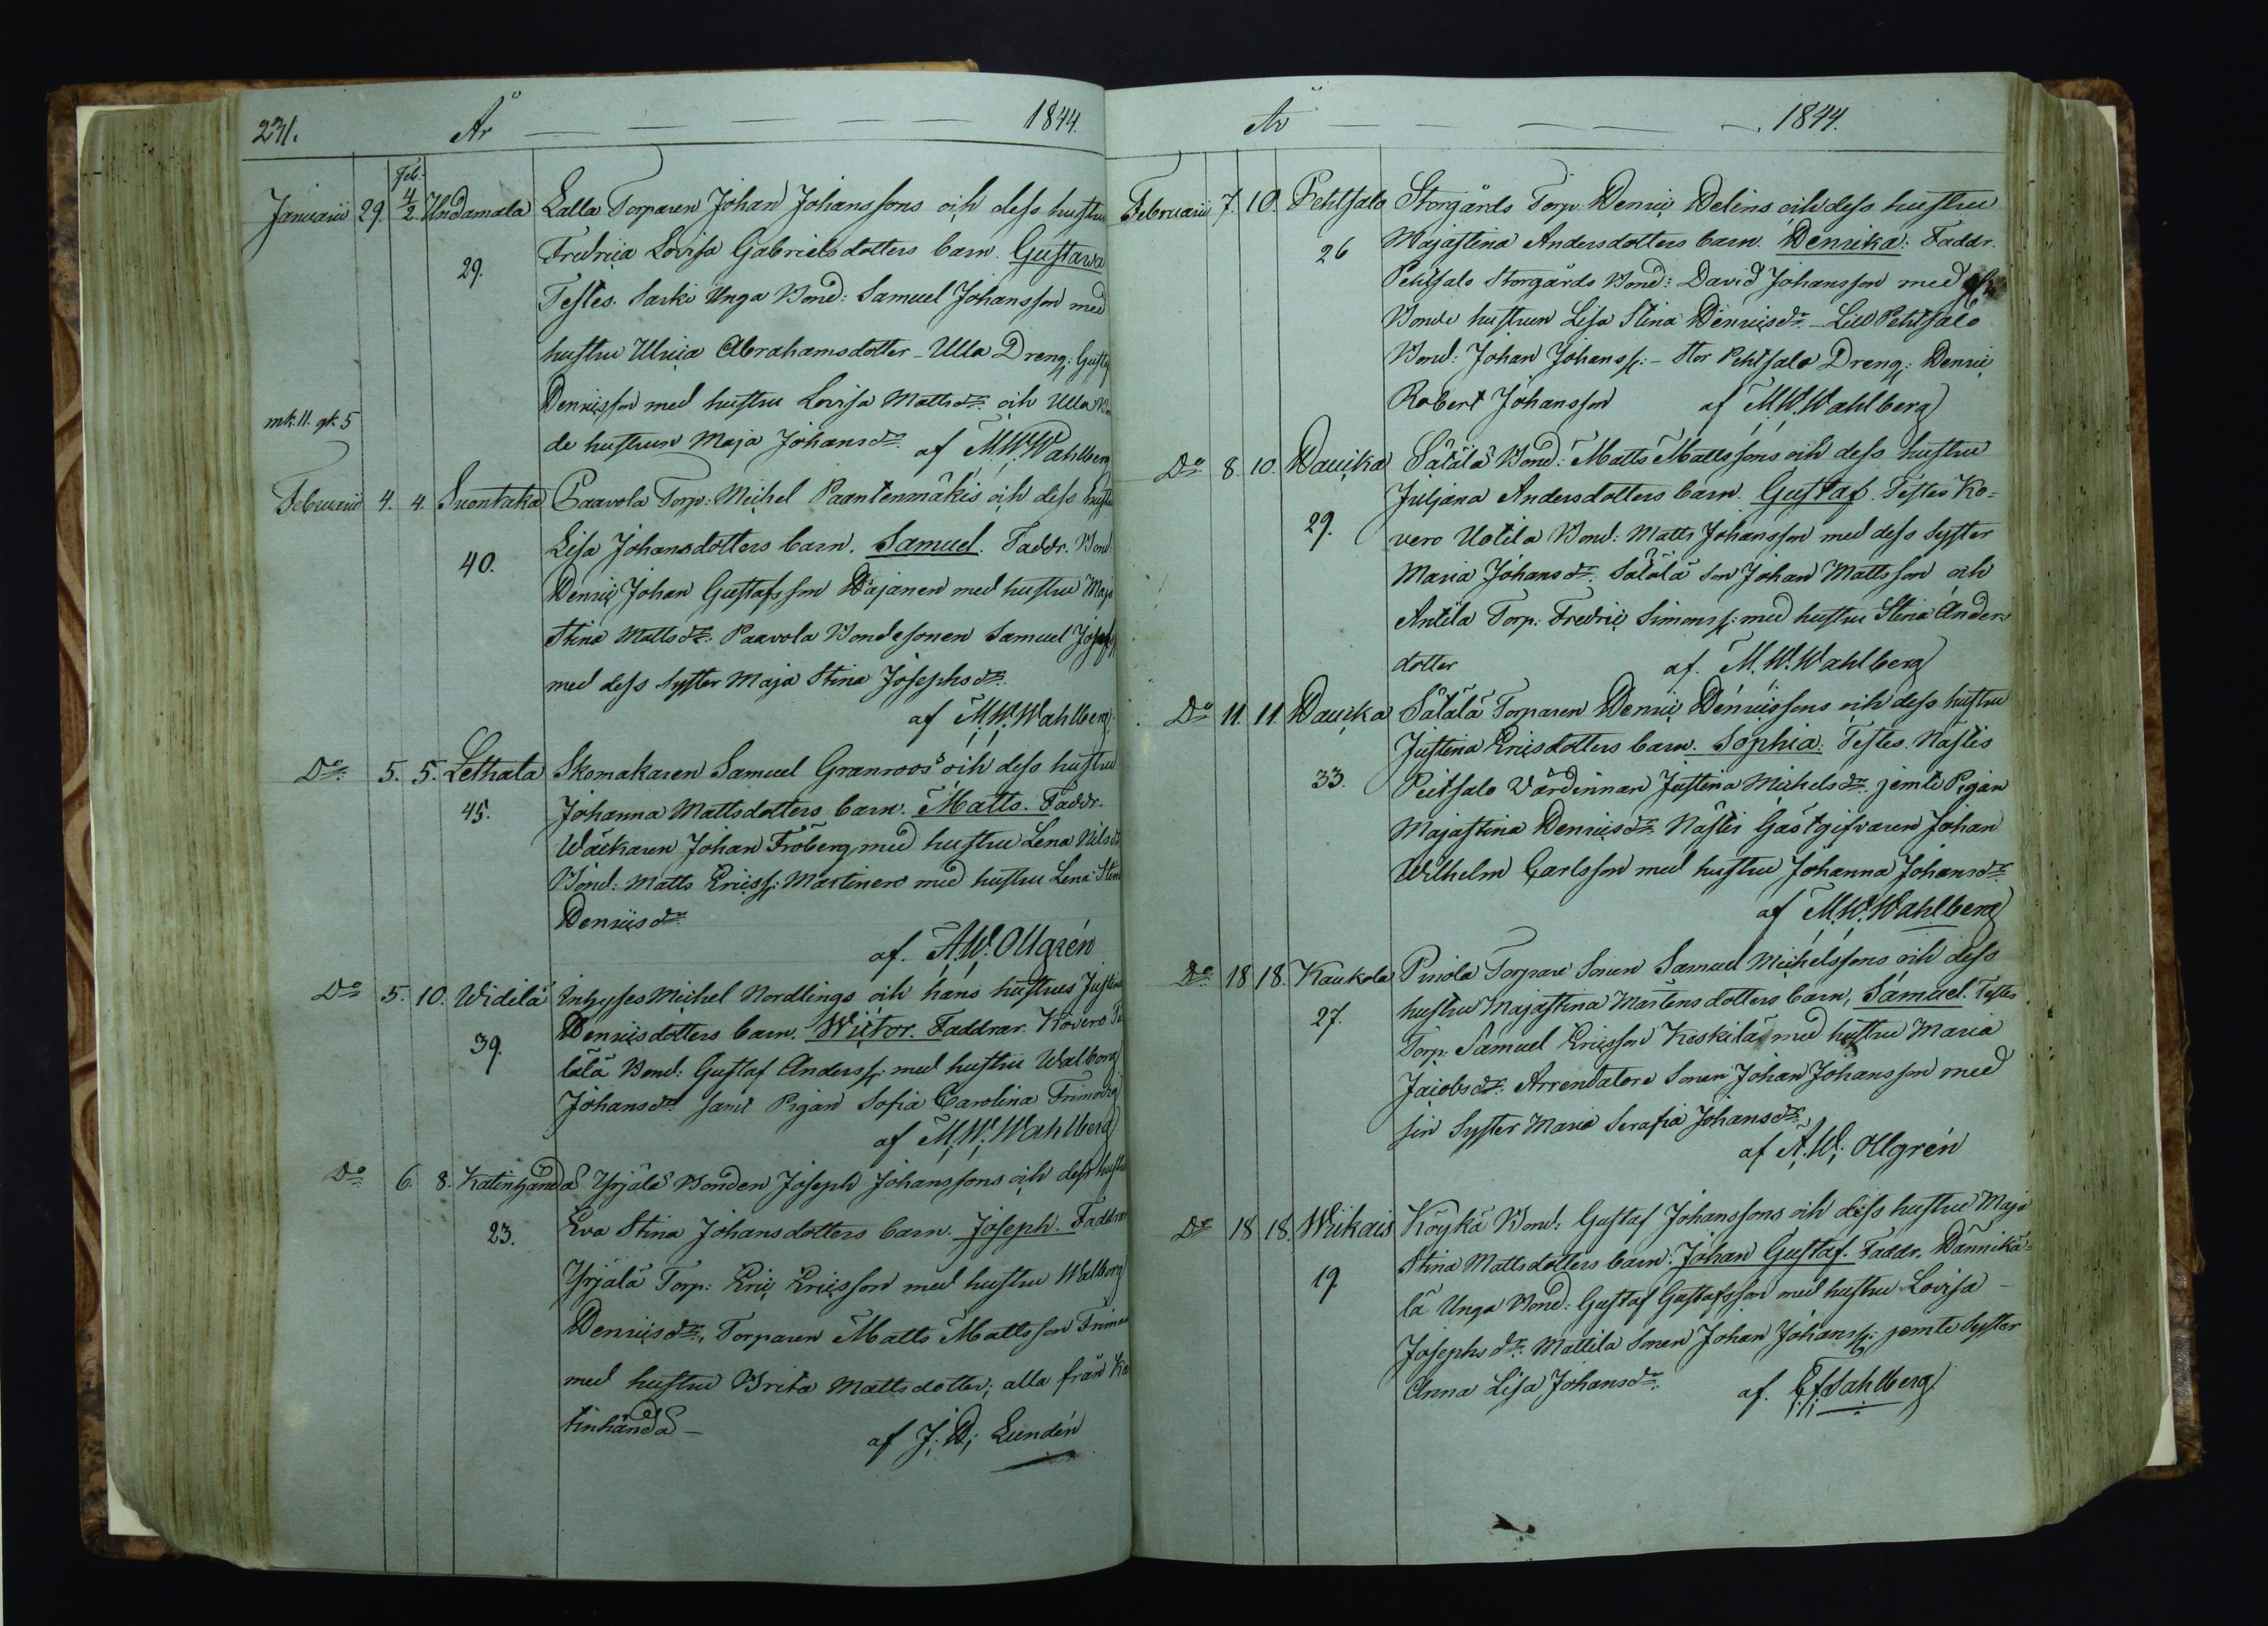 231. År 1844.
Januarii 29. Feb. 4/2. Undamala Lalla Torparen Johan Johanssons och dess hustru
29. Fredrica Lovisa Gabrielsdotters barn. Gustava
Testes. Sarki Unga Bond: Samuel Johansson med
hustru Ulrica Abrahamsdotter - Ulla Dreng:
Henricsson med hustru Lovisa Mattsdr och Ulla
mk. 11. qk. 5
de hustrun Maja Johansdr. af M.W. Wahlberg
Februarii 4. 4. Suontaka Paavola Torp: Michel Paantenmäkis och dess hustru
40. Lisa Johansdotters barn. Samuel. Faddr. Bond
Henric Johan Gustafsson Häjänen med hustru Maja
Stina Mattsdr: Paavola Bondesonen Samuel
med dess Syster Maja Stina Josephsdr.
af M.W. Wahlberg.
Do 5. 5. Lethala Skomakaren Samuel Granroos och dess hustru
45. Johanna Mattsdotters barn. Matts. Faddr.
Wäckaren Johan Fröberg med hustru Lena
Bond: Matts Ericss: Martinen med hustru Lena Stina
Henricsdr.
af. A.W. Ollgrén
Do 5. 10. Widilä Inhyses Michel Nordlings och hans hustrus Justina
39. Henricsdotters barn. Wictor. Faddrar. Kovero
lälä Bond: Gustaf Anderss: med hustru Walborg
Johansdr samt Pigan Sofia Carolina
af M.W. Wahlberg
Do 6. 8. Katinhända Yrjälä Bonden Joseph Johanssons och dess hustru
23. Eva Stina Johansdotters barn. Joseph. Faddrar
Yrjälä Torp: Eric Ericsson med hustru Walborg
Henricsdr, Torparen Matts Mattsson
med hustru Brita Mattsdotter; alla från Ka
tinhända - af J: H: Lundén
År 1844.
Februarii 7. 10. Pehtsalo Storgårds Torp. Henric Helins och dess hustru
26 Majastina Andersdotters barn. Henrika: Faddr.
Pehtsalo Storgårds Bond: David Johansson med
Bonde hustrun Lisa Stina Henricsdr - Lill Pehtsalo
Bond: Johan Johanss: - Stor Pehtsalo Dreng: Henric
Robert Johansson af M.W. Wahlberg
Do 8. 10. Haucka Sälälä Bond: Matts Mattssons och dess hustru
29. Juljana Andersdotters barn. Gustaf. Testes Ko=
vero Uotila Bond: Matts Johansson med dess Syster
Maria Johansdr: Sälälä son Johan Mattsson och
Antila Torp: Fredric Simonss: med hustru Stina Anders
dotter af. M.W. Wahlberg
Do 11. 11. Haucka Sälälä Torparen Henric Henricssons och dess hustru
33. Justina Ericsdotters barn. Sophia. Testes. Nästis
Peitsalo Värdinnan Justina Michelsdr. jemte Pigan
Majastina Henricsdr Nästis Gästgifvaren Johan
Wilhelm Carlsson med hustru Johanna Johansdr
af M.W. Wahlberg
Do 18 18. Kaukola Piriola Torpare Sonen Samuel Michelssons och dess
27. hustru Majastina Mårtensdotters barn, Samuel. Testes
Torp: Samuel Ericsson Keskitälo med hustru Maria
Jacobsdr: Arrendatore Sonen Johan Johansson med
sin Syster Maria Serafia Johansdr.
af A.W. Ollgrén
Do 18 18. Wiikais Köykä Bond: Gustaf Johanssons och dess hustru Maja
19. Stina Mattsdotters barn: Johan Gustaf. Faddr. Hännikä=
lä Unga Bond: Gustaf Gustafsson med hustru Lovisa -
Josephsdr: Mattila Sonen Johan Johanss: jemte Syster
Anna Lisa Johansdr. af. Sahlberg